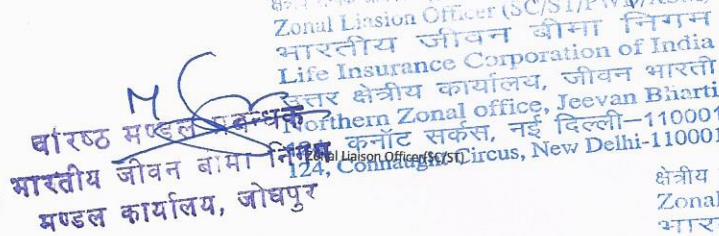 Zonal Liasion Officer (SC/ST/PWD/
भारतीय जीवन बीमा निगम
Life Insurance Corporation of India
उत्तर क्षेत्रीय कार्यालय, जीवन भारती
Northern Zonal office, Jeevan Bharti
124, कनॉट सर्कस, नई दिल्ली–110001
124, Connaught Circus, New Delhi-110001
Zonal Liaison Officer(SC/ST)
वरिष्ठ मण्डल प्रबन्धक
भारतीय जीवन बीमा निगम
मण्डल कार्यालय, जोधपुर
क्षेत्रीय
Zonal
भार